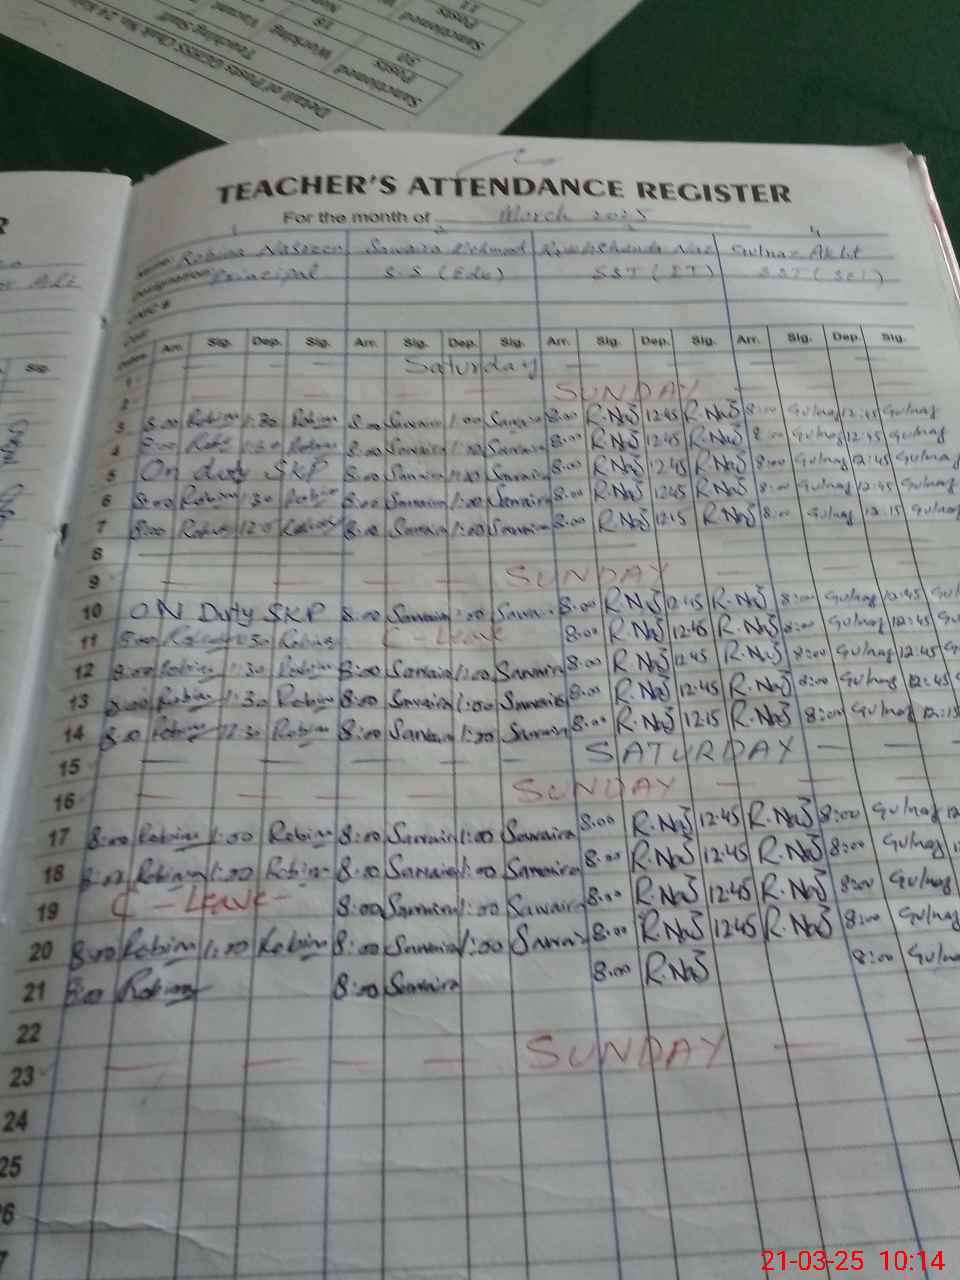 Detail of Posts GGHSS Chak No. 24
Teaching Staff
Sanctioned Posts
Working
Vacant
Sanctioned Posts
20
18
11
TEACHER'S ATTENDANCE REGISTER
For the month of March 2025
1 2 3 4
Name Robina Nasreen Sawaira Rehmad Rukhshanda Naz Gulnaz Akht
Designation Principal S.S (Edu) SST (IT) SST (Sci)
CNIC #
Dates Arr. Sig. Dep. Sig. Arr. Sig. Dep. Sig. Arr. Sig. Dep. Sig. Arr. Sig. Dep. Sig.
1 Saturday
2 SUNDAY
3 8:00 Robina 1:30 Robina 8:00 Sawaira 1:00 Sawaira 8:00 R.Naz 12:45 R.Naz 8:00 Gulnaz 12:45 Gulnaz
4 8:00 Robina 1:30 Robina 8:00 Sawaira 1:00 Sawaira 8:00 R.Naz 12:45 R.Naz 8:00 Gulnaz 12:45 Gulnaz
5 On duty SKP 8:00 Sawaira 1:00 Sawaira 8:00 R.Naz 12:45 R.Naz 8:00 Gulnaz 12:45 Gulnaz
6 8:00 Robina 1:30 Robina 8:00 Sawaira 1:00 Sawaira 8:00 R.Naz 12:45 R.Naz 8:00 Gulnaz 12:45 Gulnaz
7 8:00 Robina Robina 8:00 Sawaira 1:00 Sawaira 8:00 R.Naz 12:15 R.Naz 8:00 Gulnaz 12:15 Gulnaz
8
9 SUNDAY
10 ON Duty SKP 8:00 Sawaira 1:00 Sawaira 8:00 R.Naz 12:45 R.Naz 8:00 Gulnaz 12:45
11 8:00 Robina 1:30 Robina C - Leave 8:00 R.Naz 12:45 R.Naz 8:00 Gulnaz 12:45
12 8:00 Robina 1:30 Robina 8:00 Sawaira 1:00 Sawaira 8:00 R.Naz 12:45 R.Naz 8:00 Gulnaz 12:45
13 8:00 Robina 1:30 Robina 8:00 Sawaira 1:00 Sawaira 8:00 R.Naz 12:45 R.Naz 8:00 Gulnaz 12:45
14 8:00 Robina 12:30 Robina 8:00 Sawaira Sawaira 8:00 R.Naz 12:15 R.Naz 8:00 Gulnaz 12:15
15 SATURDAY
16 SUNDAY
17 8:00 Robina 1:00 Robina 8:00 Sawaira 1:00 Sawaira 8:00 R.Naz 12:45 R.Naz 8:00 Gulnaz
18 8:00 Robina 1:00 Robina 8:00 Sawaira 1:00 Sawaira 8:00 R.Naz 12:45 R.Naz 8:00 Gulnaz
19 C - Leave 8:00 Sawaira 1:00 Sawaira 8:00 R.Naz 12:45 R.Naz 8:00 Gulnaz
20 8:00 Robina 1:00 Robina 8:00 Sawaira 1:00 Sawaira 8:00 R.Naz 12:45 R.Naz 8:00 Gulnaz
21 8:00 Robina 8:00 Sawaira 8:00 R.Naz 8:00 Gulnaz
22
23 SUNDAY
24
25
21-03-25 10:14